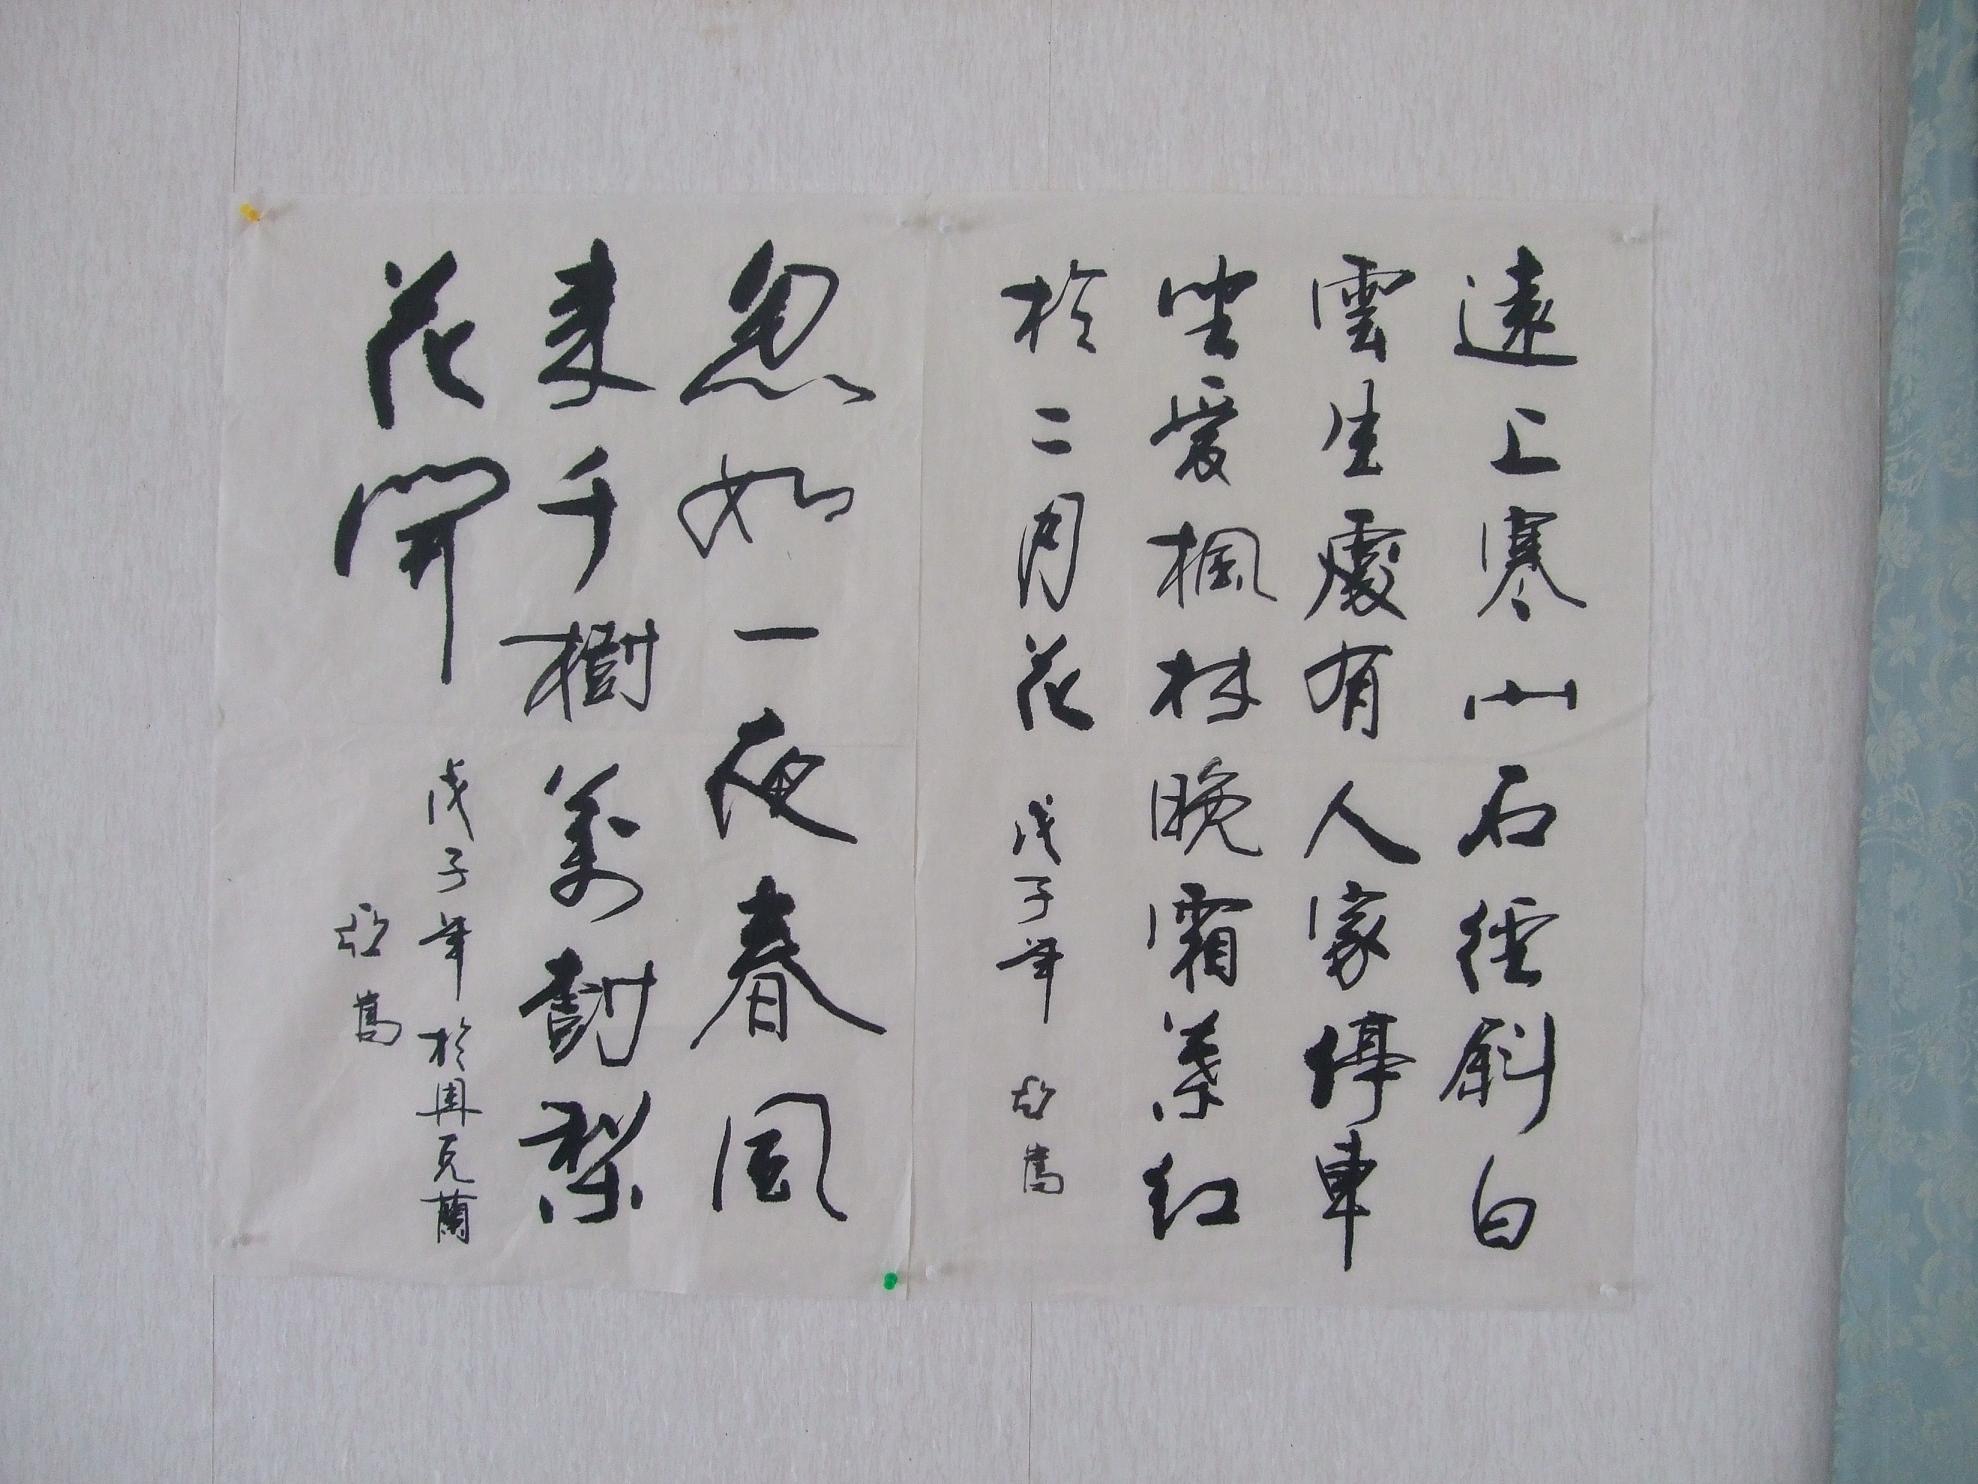 遠上寒山石徑斜白
雲生處有人家停車
坐愛楓林晚霜葉紅
於二月花 戊子年
忽如一夜春風
来千樹萬樹梨
花開
戊子年於克蘭